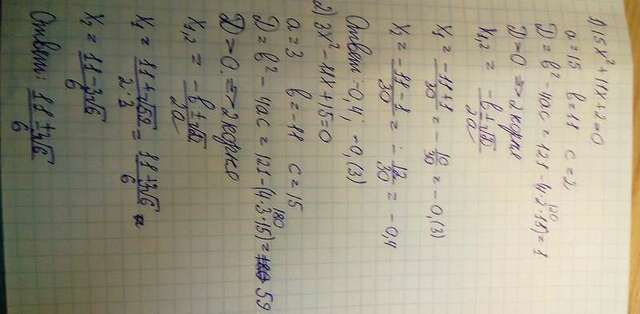 1) 15x² + 11x + 2 = 0
a = 15 b = 11 c = 2
D = b² - 4ac = 121 - (4·2·15) = 1
120
D > 0 => 2 корня
x₁,₂ = (-b ± √D) / 2a
x₁ = (-11 + 1) / 30 = -10/30 = -0,(3)
x₂ = (-11 - 1) / 30 = -12/30 = -0,4
Ответ: -0,4; -0,(3)
2) 3x² - 11x + 15 = 0
a = 3 b = -11 c = 15
D = b² - 4ac = 121 - (4·3·15) = 59
180
D > 0 => 2 корня
x₁,₂ = (-b ± √D) / 2a
Ответ: